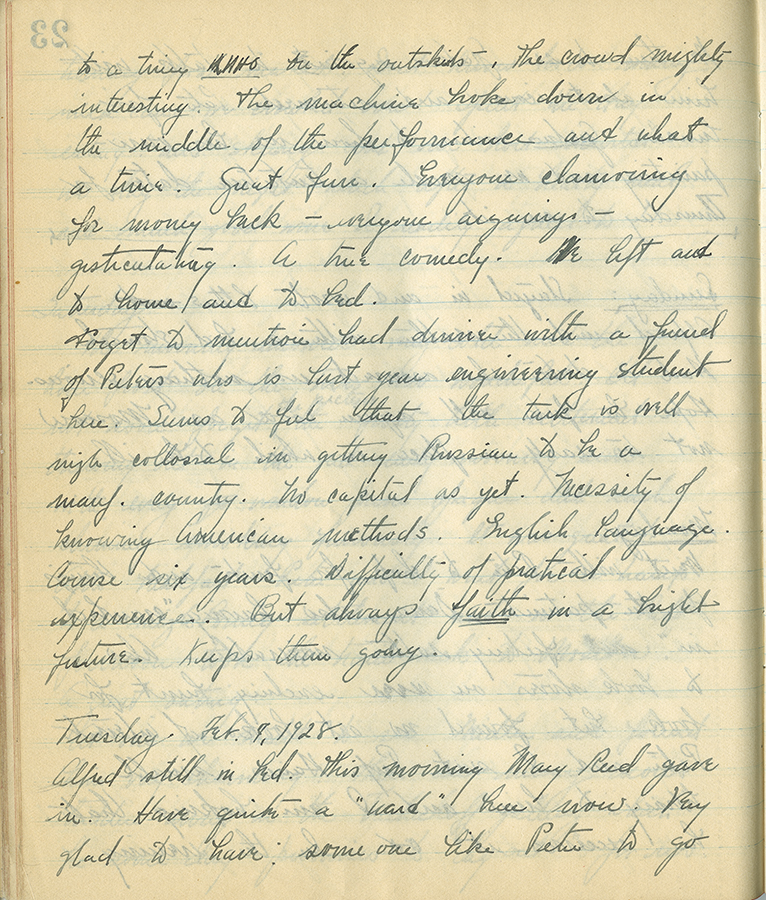 to a tiny KNHO on the outskirts. The crowd mighty
interesting. The machine broke down in
the middle of the performance and what
a time. Great fun. Everyone clamoring
for money back – everyone arguing –
gesticulating. A true comedy. We left and
to home and to bed.
Forget to mention had dinner with a friend
of Pieters who is last year engineering student
here. Seems to feel that the task is well
nigh collossal in getting Russian to be a
manf. country. No capital as yet. Necessity of
knowing American methods. English language.
Course six years. Difficulty of pratical
experience. But always faith in a bright
future. Keeps them going.
Tuesday. Feb. 9, 1928.
Alfred still in bed. This morning Mary Reed gave
in. Have quite a "ward" here now. Very
glad to have some one like Pieter to go